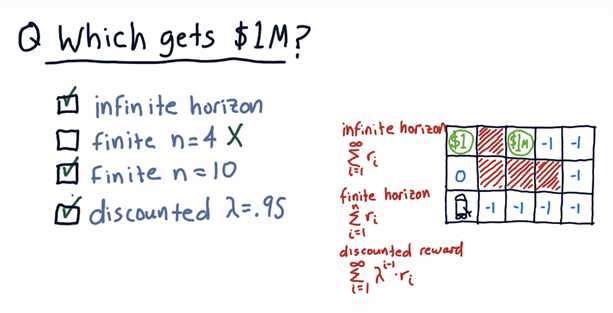 Q Which gets $1M?
infinite horizon
finite n=4 X
finite n=10
discounted λ=.95
infinite horizon
∞
Σ rᵢ
i=1
finite horizon
n
Σ rᵢ
i=1
discounted reward
∞
Σ λⁱ⁻¹·rᵢ
i=1
$1 $1M -1 -1
0 -1
-1 -1 -1 -1